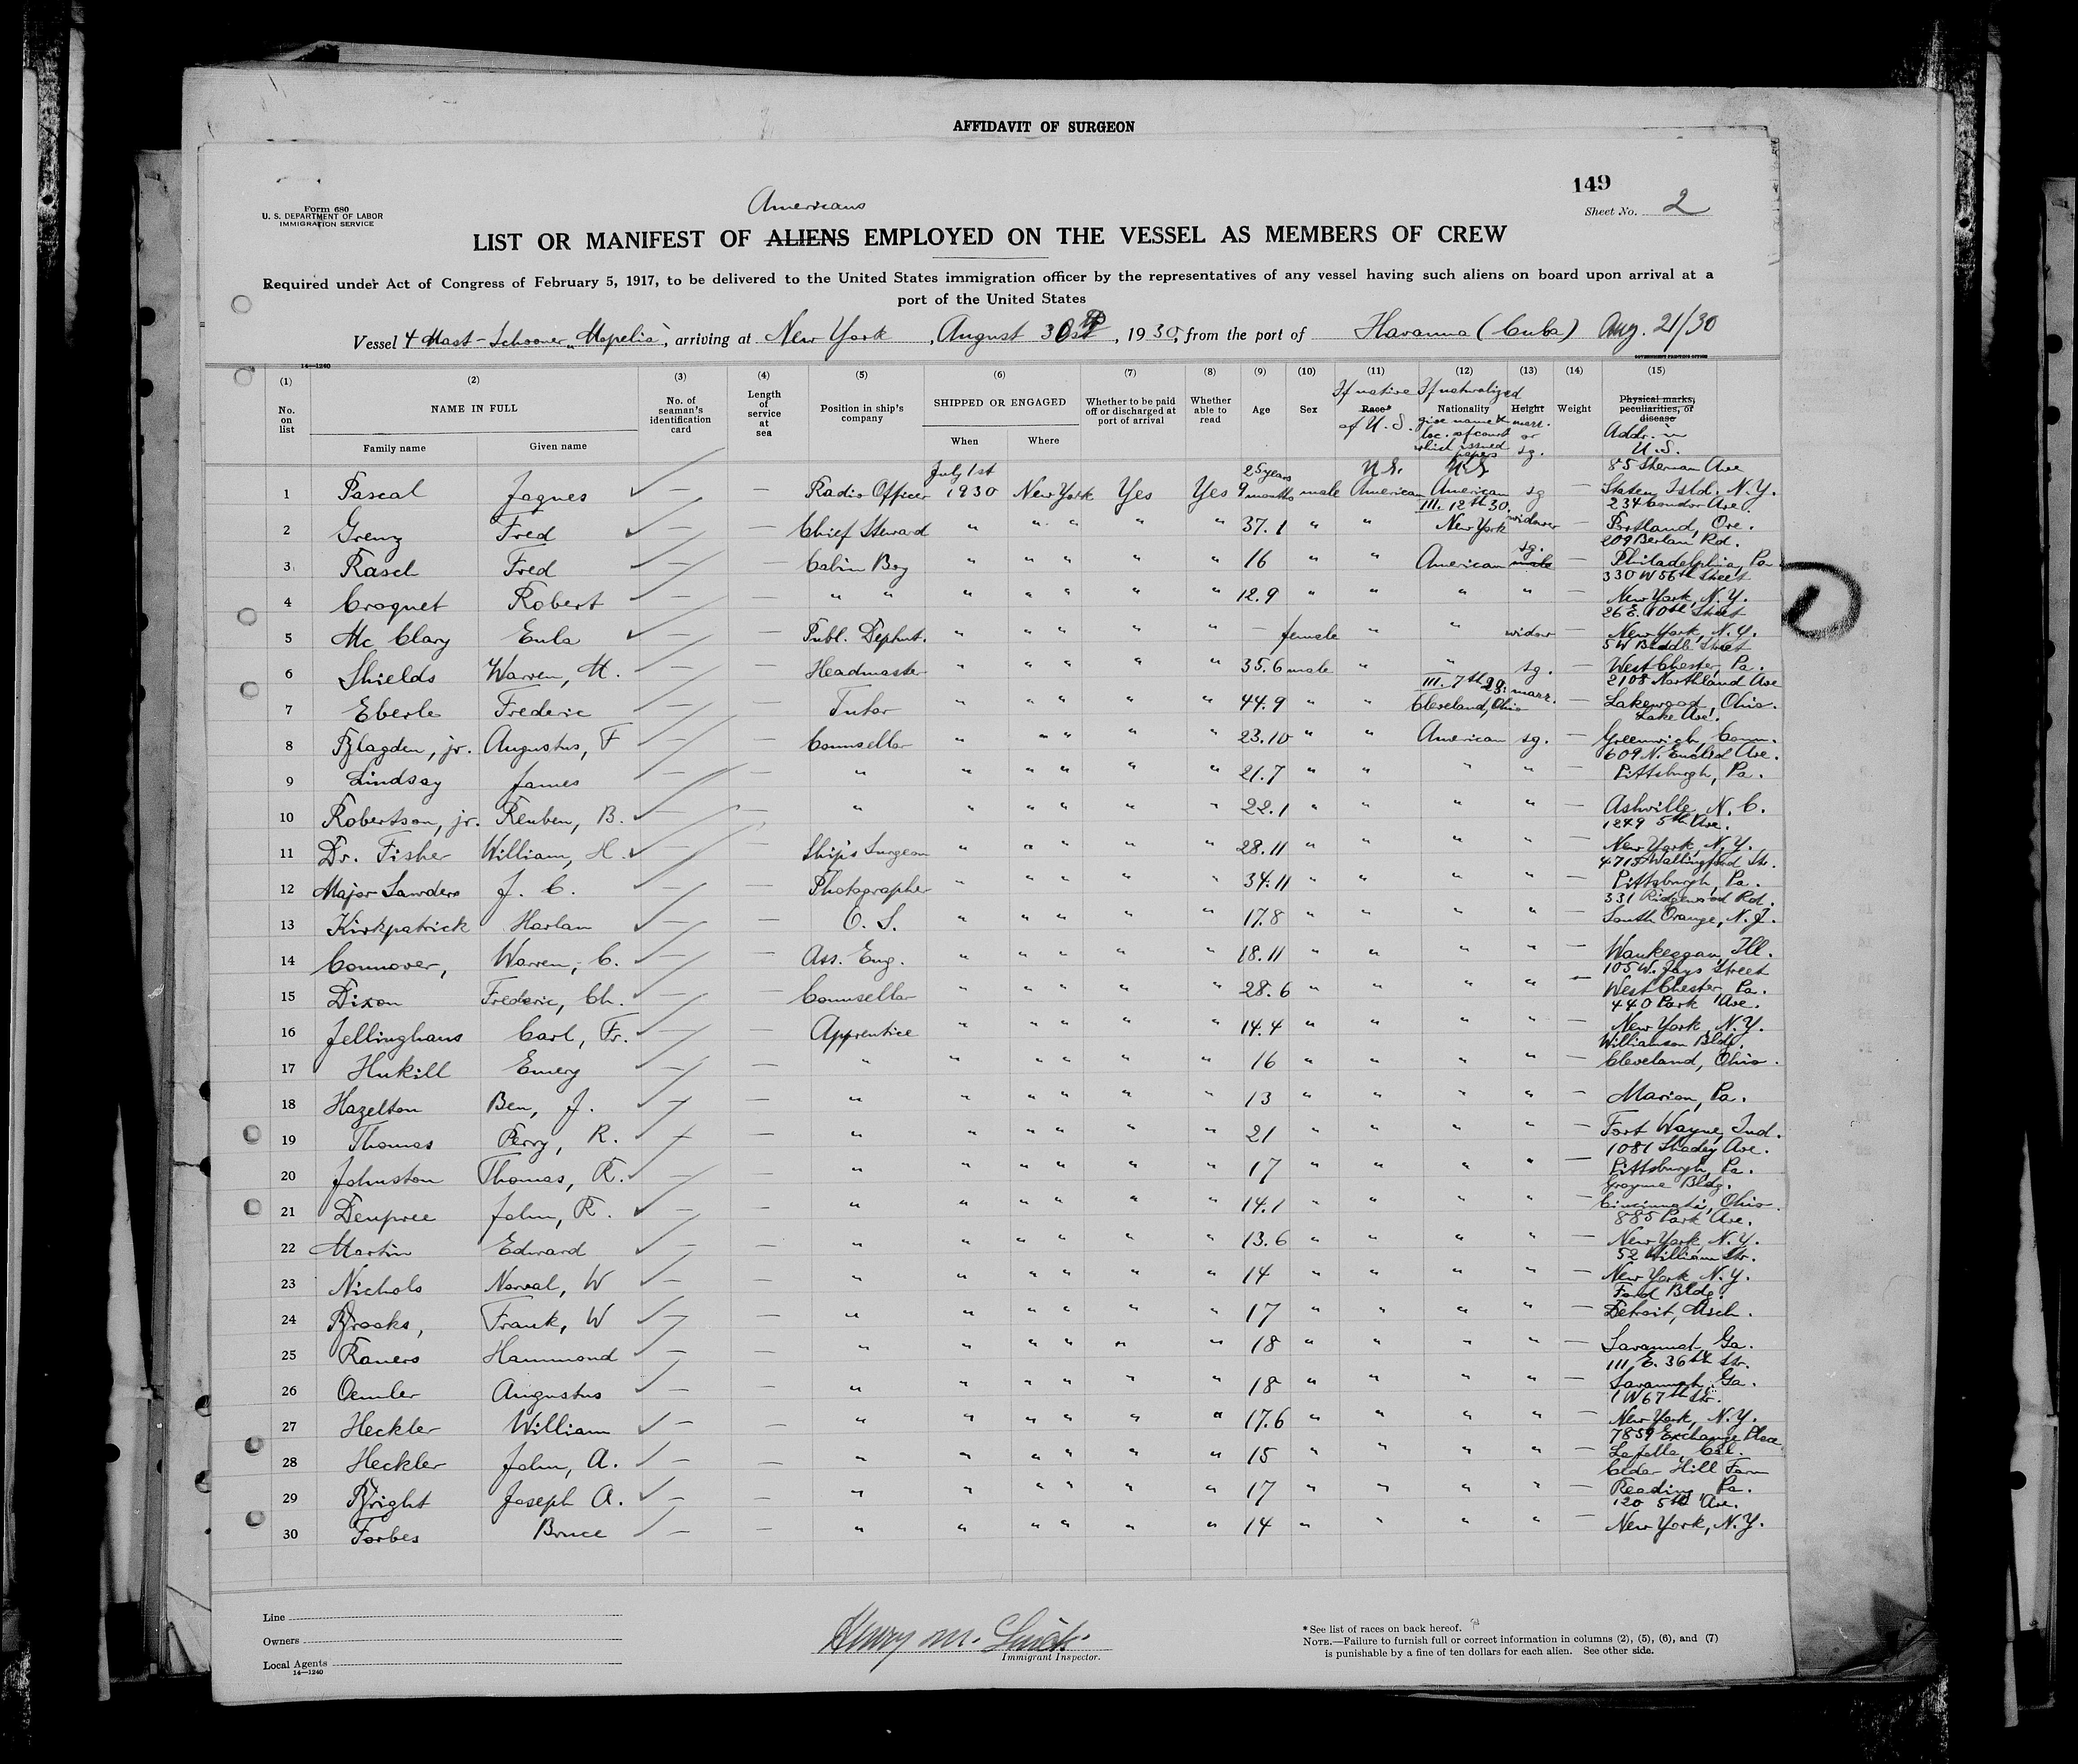 AFFIDAVIT OF SURGEON
149
Form 680
U. S. DEPARTMENT OF LABOR
IMMIGRATION SERVICE
Americans
Sheet No. 2
LIST OR MANIFEST OF ALIENS EMPLOYED ON THE VESSEL AS MEMBERS OF CREW
Required under Act of Congress of February 5, 1917, to be delivered to the United States immigration officer by the representatives of any vessel having such aliens on board upon arrival at a
port of the United States
Vessel 4 Mast-Schooner "Mopelia", arriving at New York, August 30, 1930, from the port of Havanna (Cuba) Aug. 21/30
14—1240
GOVERNMENT PRINTING OFFICE
(1) (2) (3) (4) (5) (6) (7) (8) (9) (10) (11) (12) (13) (14) (15)
No. on list
NAME IN FULL
Family name Given name
No. of seaman's identification card
Length of service at sea
Position in ship's company
SHIPPED OR ENGAGED
When Where
Whether to be paid off or discharged at port of arrival
Whether able to read
Age
Sex
If native Race* of U. S.
If naturalized Nationality give name & loc. of court which issued papers
Height marr. or sg.
Weight
Physical marks, peculiarities, or disease Addr. in U.S.
1 Pascal Jaques ✓ — — Radio Officer July 1st 1930 New York Yes Yes 25 years 9 months male U.S. American U.S. American sg — 85 Sherman Ave Staten Isld. N.Y.
2 Grenz Fred ✓ — — Chief Steward " " " " " 37.1 " " III. 12th 30. New York widower — 234 Condor Ave. Portland, Ore.
3 Rasch Fred — — Cabin Boy " " " " " 16 " " American sg. male — 209 Berlan Rd. Philadelphia, Pa
4 Croquet Robert — — " " " " " " " 12.9 " " " " — 330 W 56th Street New York, N.Y.
5 Mc Clary Eula ✓ — — Publ. Dephnt. " " " " " — female " " widow — 26 E. 10th Street New York, N.Y.
6 Shields Warren, M. — — Headmaster " " " " " 35.6 male " " sg. — 5 W Biddle Street West Chester, Pa.
7 Eberle Frederic — — Tutor " " " " " 44.9 " " III. 7th 29. Cleveland, Ohio marr. — 2108 Northland Ave Lakewood, Ohio.
8 Blagden, jr. Augustus, F — — Counsellor " " " " " 23.10 " " American sg. — Lake Ave. Greenwich, Conn.
9 Lindsay James — — " " " " " " 21.7 " " " " — 609 N. Euclid Ave. Pittsburgh, Pa.
10 Robertson, jr. Reuben, B. ✓ — — " " " " " " 22.1 " " " " — Ashville, N. C.
11 Dr. Fisher William, H. ✓ — — Ship's Surgeon " " " " " 28.11 " " " " — 1249 5th Ave. New York, N.Y.
12 Major Sawders J. C. ✓ — — Photographer " " " " " 34.11 " " " " — 4715 Wallingford Str. Pittsburgh, Pa.
13 Kirkpatrick Harlan ✓ — — O. S. " " " " " 17.8 " " " " — 331 Ridgewood Rd. South Orange, N.J.
14 Connover, Warren, C. ✓ — — Ass. Eng. " " " " " 18.11 " " " " — Waukeegan, Ill.
15 Dixon Frederic, Ch. ✓ — — Counsellor " " " " " 28.6 " " " " — 105 W. Jays Street West Chester, Pa.
16 Jellinghaus Carl, Fr. ✓ — — Apprentice " " " " " 14.4 " " " " — 440 Park Ave. New York, N.Y.
17 Hukill Emery ✓ — — " " " " " " 16 " " " " — Williamson Bldg. Cleveland, Ohio.
18 Hazelton Ben, J. ✓ — — " " " " " " 13 " " " " — Marion, Pa.
19 Thomas Perry, R. ✓ — — " " " " " " 21 " " " " — Fort Wayne, Ind.
20 Johnston Thomas, R. ✓ — — " " " " " " 17 " " " " — 1081 Shady Ave. Pittsburgh, Pa.
21 Deupree John, R. ✓ — — " " " " " " 14.1 " " " " — Bldg. Cincinnati, Ohio.
22 Martin Edward ✓ — — " " " " " " 13.6 " " " " — 885 Park Ave. New York, N.Y.
23 Nichols Norval, W ✓ — — " " " " " " 14 " " " " — 52 William Str. New York N.Y.
24 Brooks, Frank, W ✓ — — " " " " " " 17 " " " " — Ford Bldg. Detroit, Mich.
25 Rauers Hammond ✓ — — " " " " " " 18 " " " " — Savannah Ga.
26 Oemler Augustus ✓ — — " " " " " " 18 " " " " — 111, E. 36th Str. Savannah, Ga.
27 Heckler William ✓ — — " " " " " " 17.6 " " " " — 1 W 67th Str. New York, N.Y.
28 Heckler John, A. ✓ — — " " " " " " 15 " " " " — 7859 Exchange Place LaJolla, Cal.
29 Bright Joseph A. ✓ — — " " " " " " 17 " " " " — Cedar Hill Farm Reading, Pa.
30 Forbes Bruce ✓ — — " " " " " " 14 " " " " — 120 5th Ave. New York, N.Y.
Line
Owners
Local Agents
14—1240
Henry M.
Immigrant Inspector.
* See list of races on back hereof.
NOTE.—Failure to furnish full or correct information in columns (2), (5), (6), and (7)
is punishable by a fine of ten dollars for each alien. See other side.